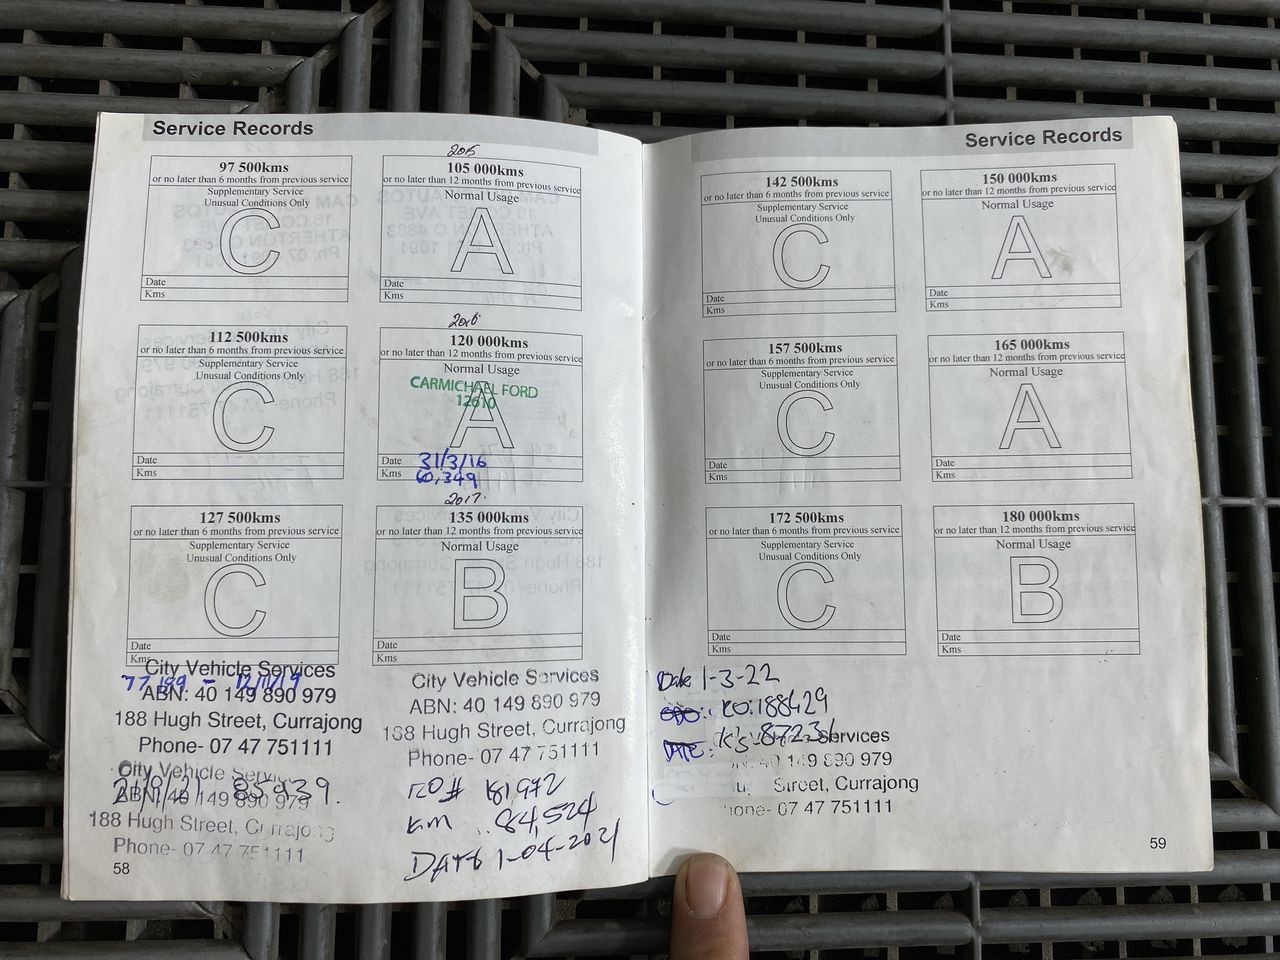 Service Records
97 500kms
or no later than 6 months from previous service
Supplementary Service
Unusual Conditions Only
C
Date
Kms
2015
105 000kms
or no later than 12 months from previous service
Normal Usage
A
Date
Kms
112 500kms
or no later than 6 months from previous service
Supplementary Service
Unusual Conditions Only
C
Date
Kms
2016
120 000kms
or no later than 12 months from previous service
Normal Usage
CARMICHAEL FORD
12610
A
Date 31/3/16
Kms 60,349
127 500kms
or no later than 6 months from previous service
Supplementary Service
Unusual Conditions Only
C
Date
Kms
2017
135 000kms
or no later than 12 months from previous service
Normal Usage
B
Date
Kms
City Vehicle Services
ABN: 40 149 890 979
188 Hugh Street, Currajong
Phone- 07 47 751111
City Vehicle Services
ABN: 40 149 890 979
85939.
188 Hugh Street, Currajong
Phone- 07 47 751111
City Vehicle Services
ABN: 40 149 890 979
188 Hugh Street, Currajong
Phone- 07 47 751111
RO# 181972
KM 84,524
DATE 1-04-2021
58
Service Records
142 500kms
or no later than 6 months from previous service
Supplementary Service
Unusual Conditions Only
C
Date
Kms
150 000kms
or no later than 12 months from previous service
Normal Usage
A
Date
Kms
157 500kms
or no later than 6 months from previous service
Supplementary Service
Unusual Conditions Only
C
Date
Kms
165 000kms
or no later than 12 months from previous service
Normal Usage
A
Date
Kms
172 500kms
or no later than 6 months from previous service
Supplementary Service
Unusual Conditions Only
C
Date
Kms
180 000kms
or no later than 12 months from previous service
Normal Usage
B
Date
Kms
Date 1-3-22
RO: 188429
K's - 87231
Services
40 149 890 979
Street, Currajong
07 47 751111
59